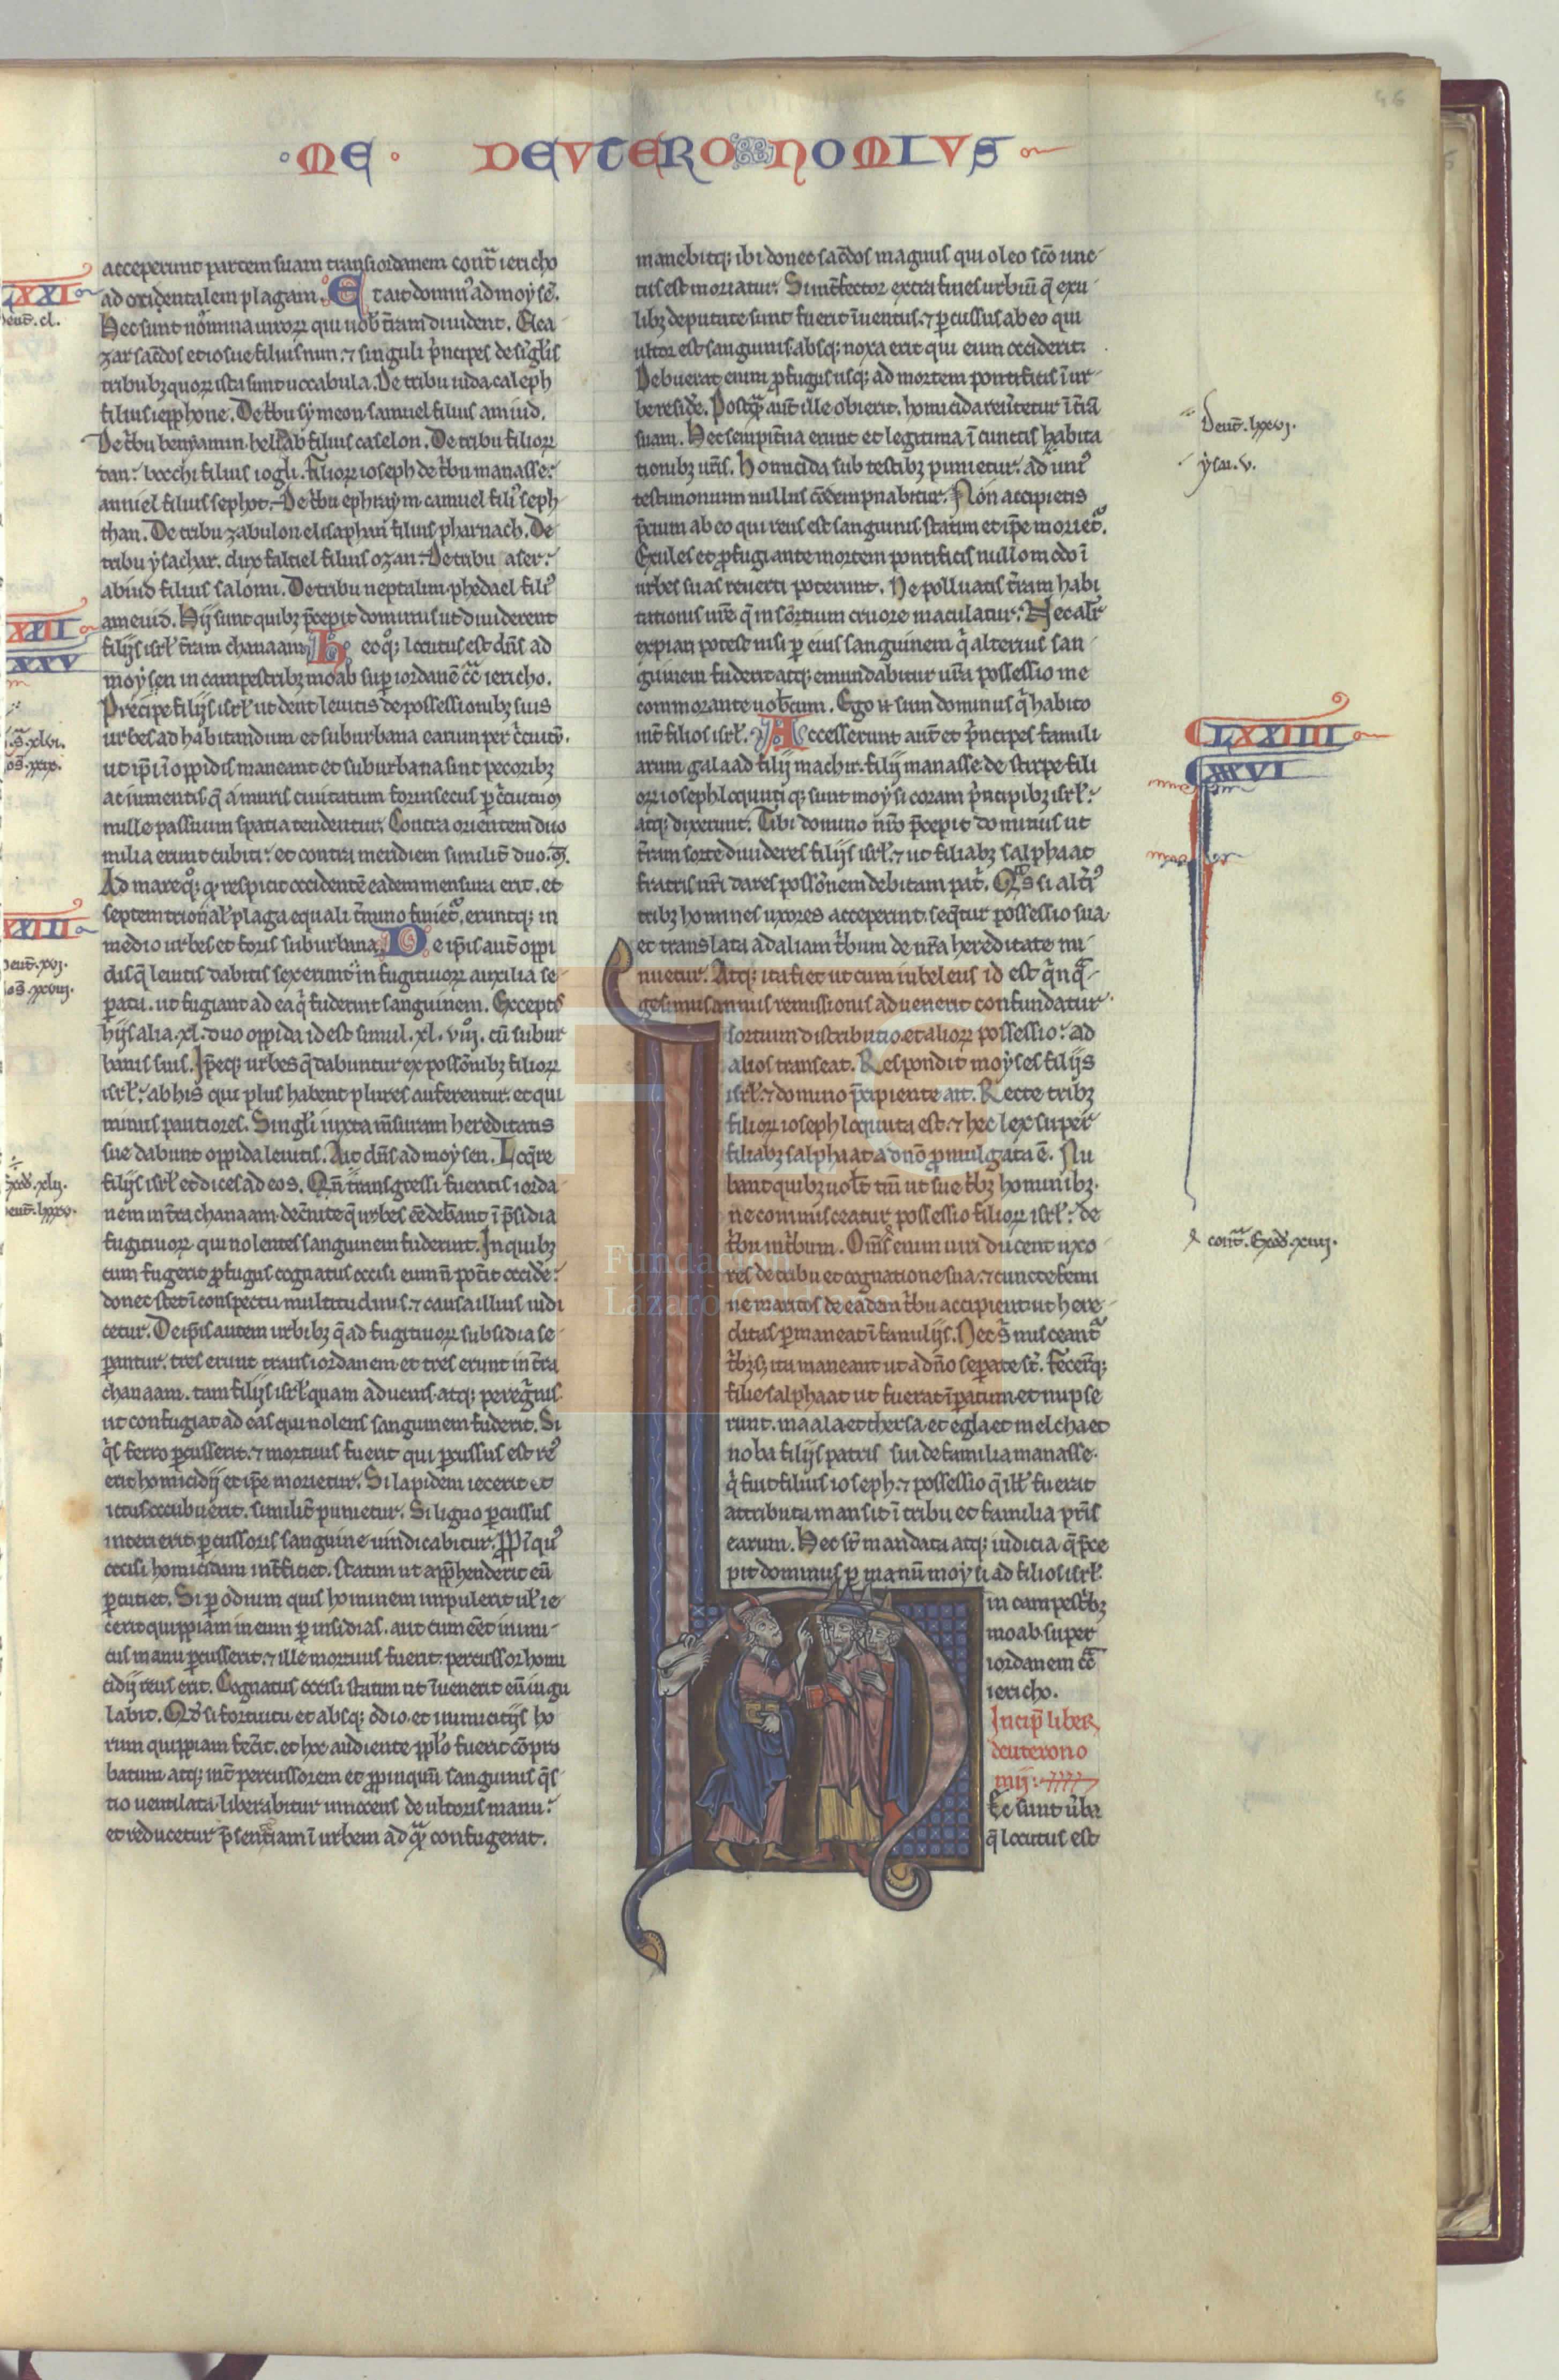 ME · DEUTERONOMIUS
46
acceperunt partem suam trans iordanem cont̃ iericho
ad occidentalem plagam. Et ait domin᷒ ad moysẽ.
Hec sunt nomina uiroꝝ qui uob̃ t̃ram diuident. Elea
zar sac̃dos et iosue filius nun. ⁊ singuli p̃ncipes de sig̃lis
tribubꝫ quoꝝ ista sunt uocabula. De tribu iuda caleph
filius iepphone. De t̃bu symeon samuel filius amiud.
De t̃bu beniamin heldab filius caselon. De tribu filioꝝ
dan. bocchi filius iogli. filioꝝ ioseph de t̃bu manasse.
anniel filius sephot. De t̃bu ephraym camuel fili᷒ seph
than. De tribu zabulon elisaphan filius pharnach. De
tribu ysachar. dux faltiel filius ozan. De tribu aser.
abiud filius salomi. De tribu neptalim. phedael fili᷒
ameiud. Hij sunt quibꝫ p̃cepit dominus ut diuiderent
filijs isrł t̃ram chanaam. Hec oq̃ꝫ locutus est dñs ad
moysen in campestribꝫ moab sup iordanẽ cc̃ iericho.
Precipe filijs isrł ut dent leuitis de possessionibꝫ suis
urbes ad habitandum et suburbana earum per c̃cuitũ.
ut ip̃i ĩ oppidis maneant et suburbana sint pecoribꝫ
ac iumentis q̃ a muris ciuitatum forinsecus p c̃cuitum
mille passuum spatia tendentur. Contra orientem duo
milia erunt cubiti. et contra meridiem similit̃ duo. m̃.
Ad mareq̃ꝫ q̃ respicit occidentẽ eadem mensura erit. et
septemtrional̃ plaga equali t̃mino finiet᷒. eruntqꝫ in
medio urbes et foris suburbana. De ip̃is aut̃ oppi
dis q̃ leuitis dabitis sex erunt in fugitiuoꝝ auxilia se-
parta. ut fugiant ad ea q̃ fuderint sanguinem. Exceptis
hijs alia. xl. duo oppida id est simul. xl. viij. cũ subur
banis suis. Ip̃eqꝫ urbes q̃ dabuntur ex possõnibꝫ filioꝝ
isrł. ab his qui plus habent plures auferentur. et qui
minus pauciores. Singłi iuxta m̃suram hereditatis
sue dabunt oppida leuitis. Ait dñs ad moysen. Loq̃re
filijs isrł et dices ad eos. Qñ transgressi fueritis iorda-
nem in t̃ra chanaam. dec̃nite q̃ urbes eẽ debeant ĩ p̃sidia
fugitiuoꝝ qui nolentes sanguinem fuderint. In quibꝫ
cum fugerit p̃fugus cognatus occisi eum ñ pot̃it occide᷒
donec stet ĩ conspectu multitudinis. ⁊ causa illius iudi
cetur. De ip̃is autem urbibꝫ q̃ ad fugitiuoꝝ subsidia se-
parantur. tres erunt trans iordanem et tres erunt in t̃ra
chanaam. tam filijs isrł quam aduenis atqꝫ peregrinis
ut confugiat ad eas qui nolens sanguinem fuderit. Si
q̃s ferro pcusserit. ⁊ mortuus fuerit qui pcussus est re᷒
erit homicidij et ip̃e morietur. Si lapidem iecerit et
ictus occubuerit. similit̃ punietur. Si ligno pcussus
interierit. pcussoris sanguine uindicabitur. Ppĩqu᷒
occisi homicidam int̃ficiet. statim ut app̃henderit eũ
pcutiet. Si p odium quis hominem impulerit uł ie-
cerit quippiam in eum p insidias. aut cum eẽt inimi-
cus manu pcusserit. ⁊ ille mortuus fuerit. percussor homi
cidij reus erit. Cognatus occisi statim ut ĩuenerit eũ iugu
labit. Qd̃ si fortuitu et absqꝫ odio. et inimicitijs ho
rum quippiam fec̃it. et hoc audiente ppł̃o fuerit cõpro
batum atqꝫ int̃ percussorem et ppinquũ sanguinis q̃s-
tio uentilata. liberabitur innocens de ultoris manu.
et reducetur p sentẽtiam ĩ urbem ad qm̃ confugerat.
manebitqꝫ ibi donec sac̃dos magnus qui oleo sc̃o unc-
tus est moriatur. Si int̃fector extra fines urbiũ q̃ exu-
libꝫ deputate sunt fuerit ĩuentus. ⁊ pcussus ab eo qui
ultor est sanguinis absqꝫ noxa erit qui eum occiderit.
Debuerat enim pfugus usqꝫ ad mortem pontificis ĩ ur-
be reside᷒. Postq̃ aut̃ ille obierit. homicida reũtetur ĩ t̃rã
suam. Hec sempit̃na erunt et legitima ĩ cunctis habita
tionibꝫ ur̃is. Homicida sub testibꝫ punietur. ad uni᷒
testimonium nullus cõdempnabitur. Non accipietis
p̃cium ab eo qui reus est sanguinis statim et ip̃e moriet᷒.
Exules et pfugi ante mortem pontificis nullo modo ĩ
urbes suas reuerti poterunt. Ne polluatis t̃ram habi
tationis ur̃e q̃ insõtium cruore maculatur. Nec alit̃
expiari potest nisi p eius sanguinem q̃ alterius san-
guinem fuderit atqꝫ emundabitur ur̃a possessio me
commorante uob̃cum. Ego .n̄. sum dominus q̃ habito
int̃ filios isrł. Accesserunt aut̃ et p̃ncipes famili
arum galaad filij machir. filij manasse de stirpe fili
oꝝ ioseph. loquutiqꝫ sunt moysi coram p̃ncipibꝫ isrł.
atqꝫ dixerunt. Tibi domino nr̃o p̃cepit dominus ut
t̃ram sorte diuideres filijs isrł. ⁊ ut filiabꝫ salphaat
fratris nr̃i dares possõnem debitam pat̃. Qd̃ si alt̃i᷒
tribꝫ homines uxores acceperint. seq̃tur possessio sua.
et translata ad aliam t̃bum de nr̃a hereditate mi-
nuetur. Atqꝫ ita fiet ut cum iubeleus id est q̃nq̃-
gesimus annus remissionis aduenerit confundatur
sortium distributio. et alioꝝ possessio. ad
alios transeat. Respondit moyses filijs
isrł. ⁊ domino p̃cipiente ait. Recte tribꝫ
filioꝝ ioseph loquuta est. ⁊ hec lex super
filiabꝫ salphaat a dñõ pmulgata ẽ. Nu
bant quibꝫ uol̃t tm̃ ut sue t̃bꝫ hominibꝫ.
ne commisceatur possessio filioꝝ isrł. de
t̃bu in t̃bum. Om̃s enim uiri ducent uxo-
res de tribu et cognatione sua. ⁊ cuncte femi
ne maritos de eadem t̃bu accipient ut here-
ditas pmaneat ĩ familijs. Nec s̃ misceant᷒
t̃bꝫ sꝫ ita maneant ut a dño separate st̃. Fecerũtqꝫ
filie salphaat ut fuerat ĩpatum. et nupse
runt. maala et thersa. et egla et melcha et
noba filijs patris sui de familia manasse.
q̃ fuit filius ioseph. ⁊ possessio q̃ ill̃ fuerat
attributa mansit ĩ tribu et familia pr̃is
earum. Hec st̃ mandata atqꝫ iudicia q̃ p̃ce
pit dominus p manũ moysi ad filios isrł
in campest̃bꝫ
moab super
iordanem cc̃
iericho.
Incip̃ liber
deuterono
mij.
Hec sunt u̾ba
q̃ locutus est
LXXI
deut̃. cl.
XXV
deut̃. xvj.
os̃. xxviij.
exod̃. xlij.
deut̃. lxxv.
Deut̃. lxxvj.
ysa. v.
LXXIIII
XXXVI
cont̃. Exod̃. xiiij.
Fundación
Lázaro Galdiano